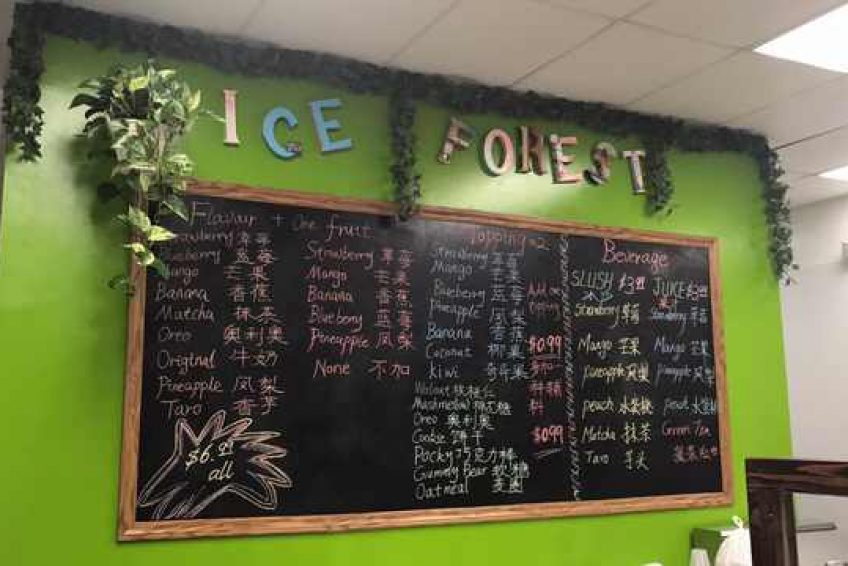 ICE FOREST
Flavour + One fruit
Strawberry 草莓
Blueberry 蓝莓
Mango 芒果
Banana 香蕉
Matcha 抹茶
Oreo 奥利奥
Original 牛奶
Pineapple 凤梨
Taro 香芋
$6.99
all
Strawberry 草莓
Mango 芒果
Banana 香蕉
Blueberry 蓝莓
Pineapple 凤梨
None 不加
Topping x2
Strawberry 草莓
Mango 芒果
Blueberry 蓝莓
Pineapple 凤梨
Banana 香蕉
Coconut 椰果
kiwi 奇异果
Walnut 核桃仁
Oreo 奥利奥
Cookie 饼干
Pocky 巧克力棒
Gummy Bear 软糖
Oatmeal 麦圈
Add on
topping
$0.99
$0.99
Beverage
SLUSH
Strawberry 草莓
Mango 芒果
pineapple 凤梨
peach 水蜜桃
Matcha 抹茶
Taro 芋头
JUICE
Strawberry 草莓
Mango 芒果
pineapple 凤梨
peach 水蜜桃
Green Tea